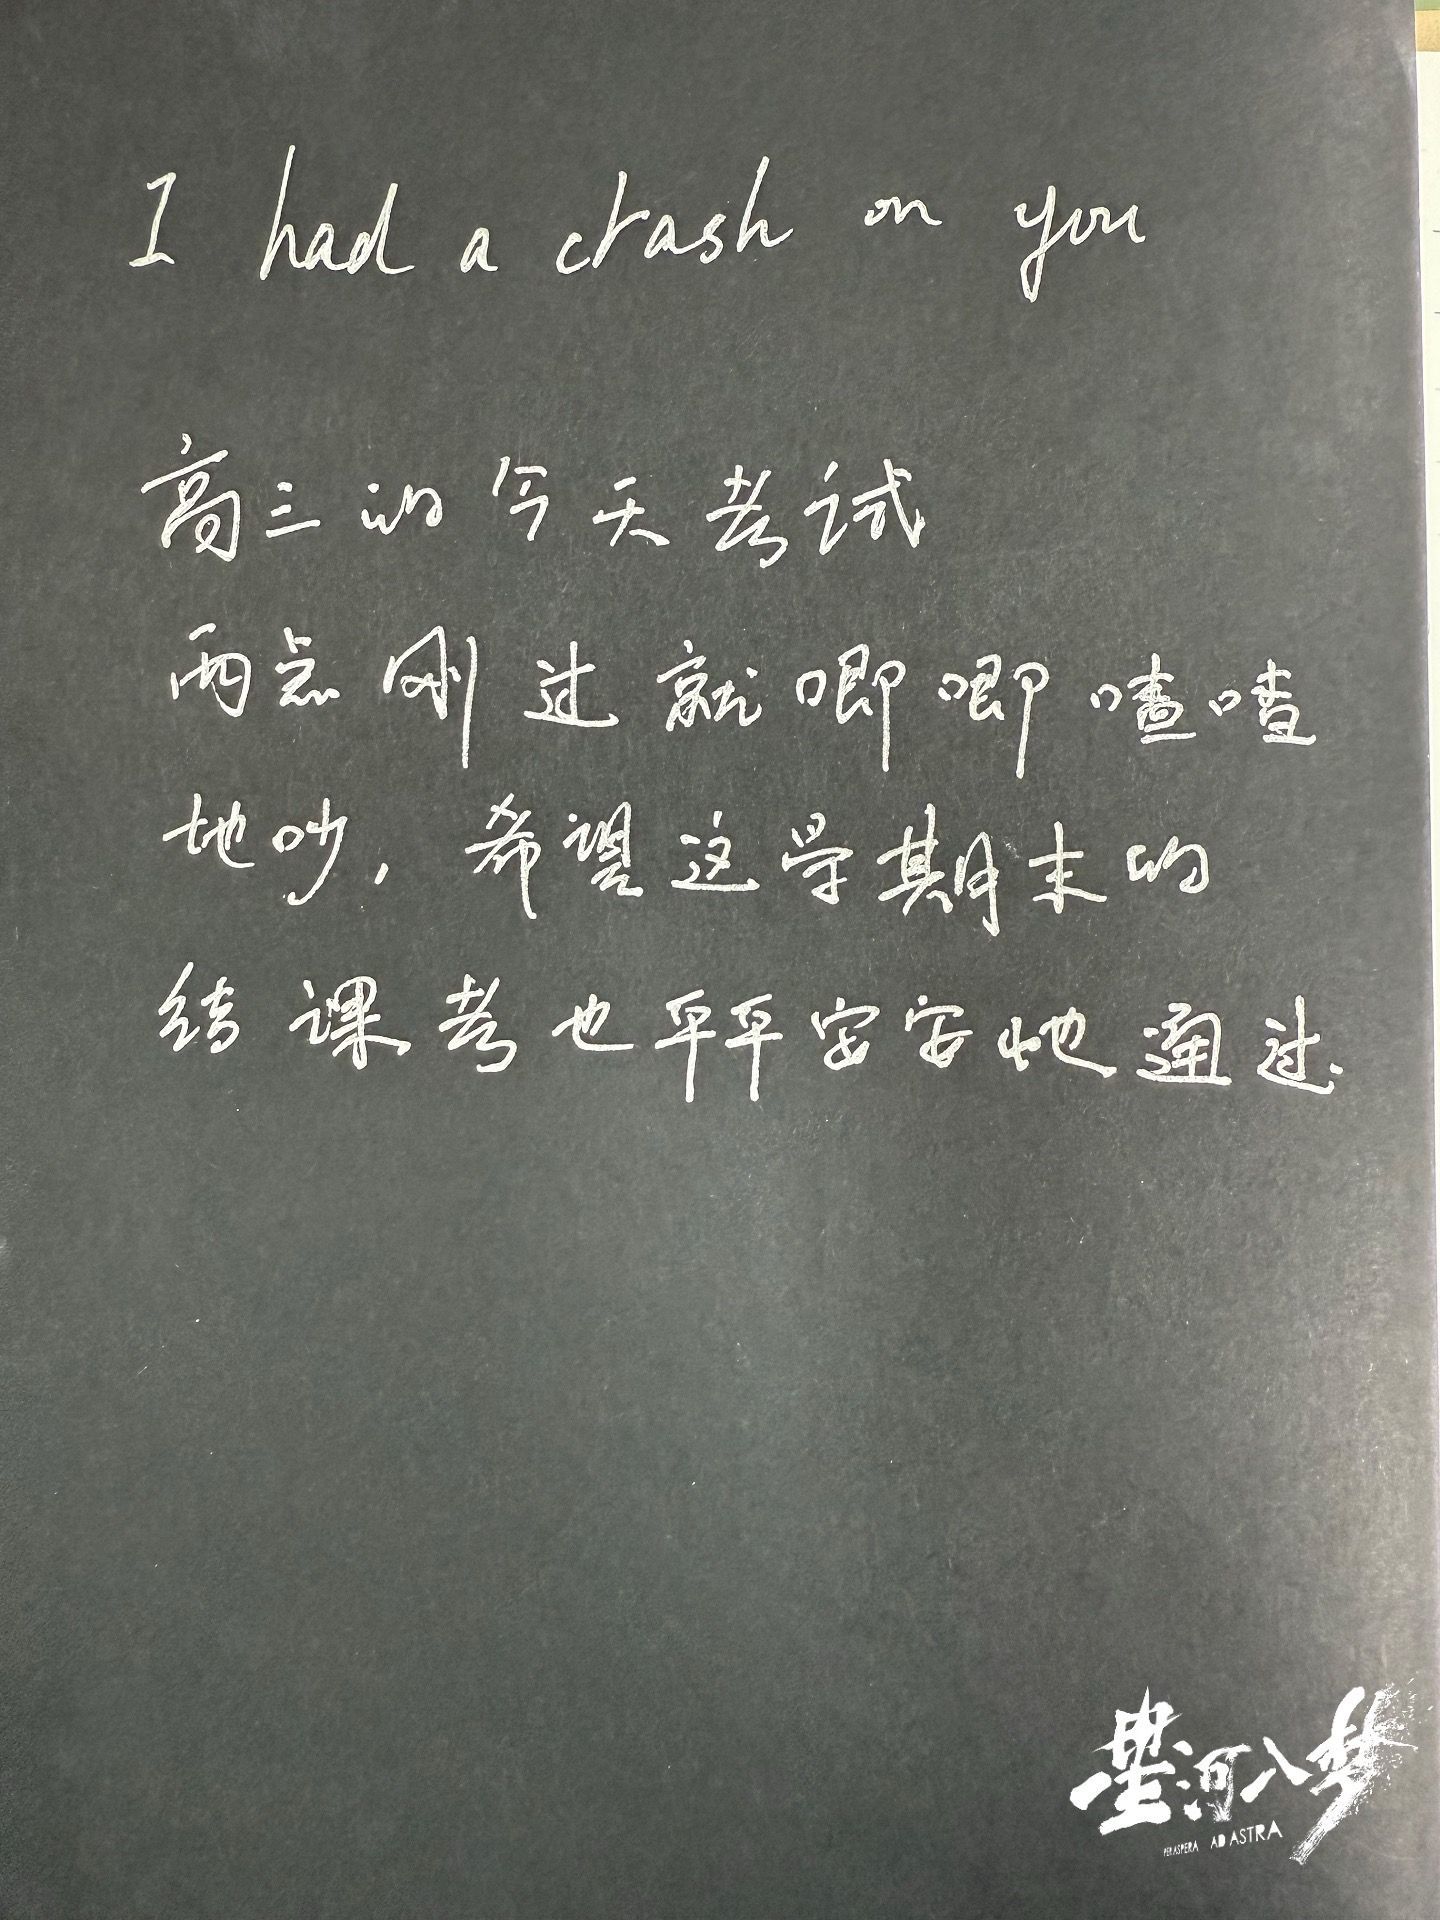 I had a crash on you
高三的今天考试
两点刚过就唧唧喳喳
地吵，希望这学期末的
结课考也平平安安地通过
星河入梦
PER ASPERA AD ASTRA